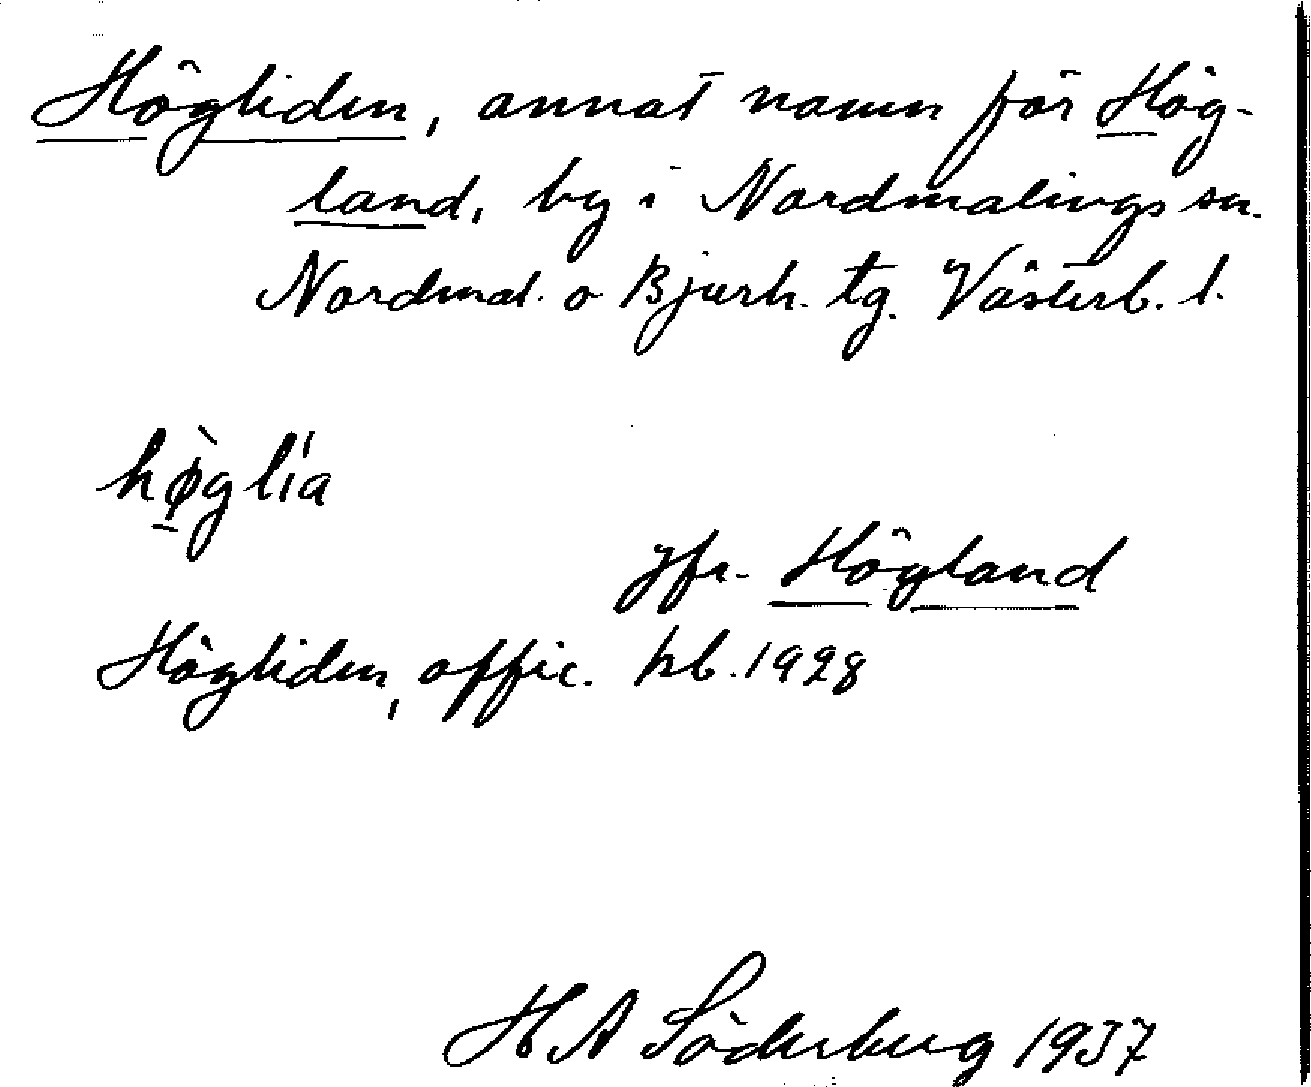 Högliden, annat namn för Hög-
land, by i Nordmalings sn.
Nordmal. o Bjurh. tg. Västerb. l.
hø̀glía
jfr. Högland
Högliden, offic. kb. 1928
H A Söderberg 1937